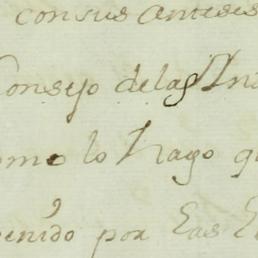 consus
Consejo delas Ind
omo lo hago q
enido por las